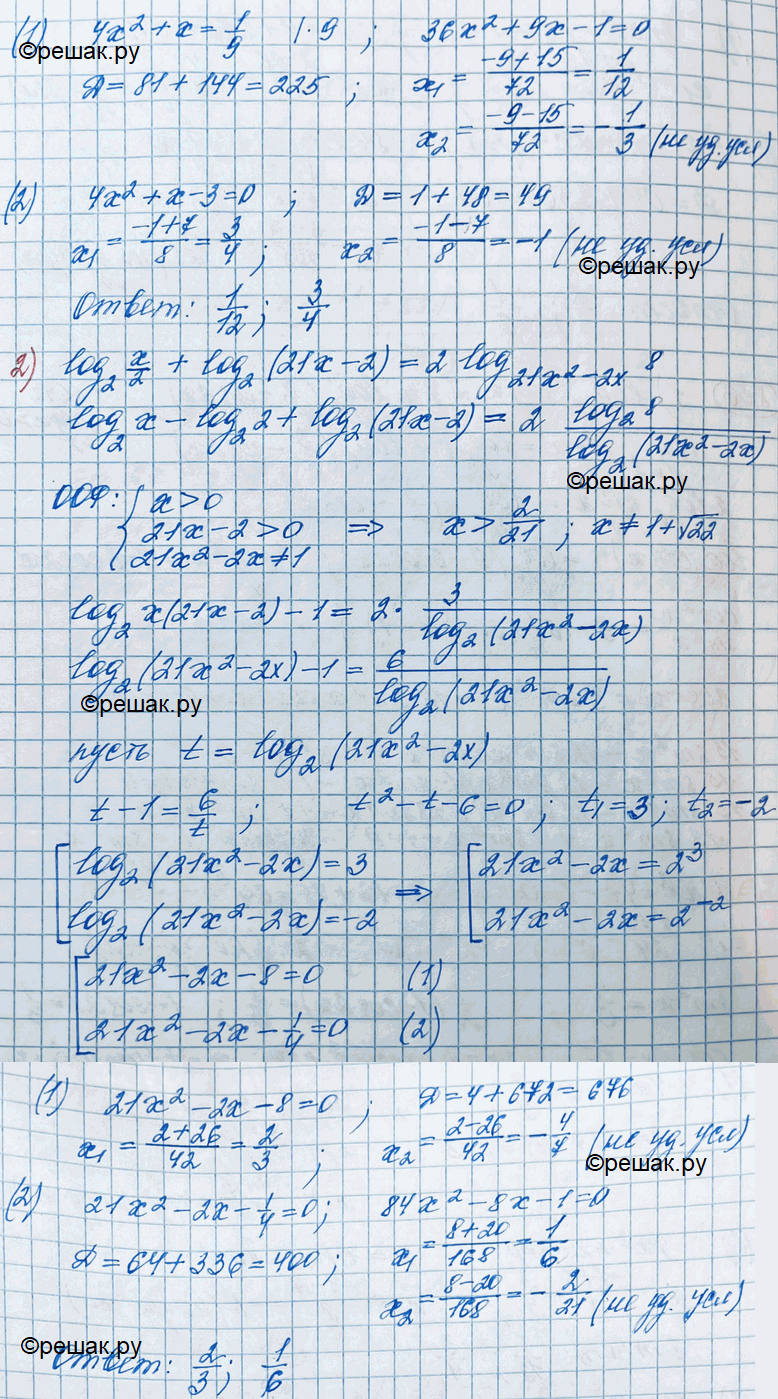 (1) 4x² + x = 1/9 | · 9 ; 36x² + 9x − 1 = 0
©решак.ру
Д = 81 + 144 = 225 ; x₁ = (−9+15)/72 = 1/12
x₂ = (−9−15)/72 = −1/3 (не уд. усл)
(2) 4x² + x − 3 = 0 ; Д = 1 + 48 = 49
x₁ = (−1+7)/8 = 3/4 ; x₂ = (−1−7)/8 = −1 (не уд. усл)
©решак.ру
Ответ: 1/12 ; 3/4
2) log₂ x/2 + log₂ (21x − 2) = 2 log_{21x²−2x} 8
log₂ x − log₂ 2 + log₂ (21x − 2) = 2 log₂ 8 / log₂ (21x² − 2x)
©решак.ру
ООФ: { x > 0
21x − 2 > 0 ⇒ x > 2/21 ; x ≠ 1 + √22
21x² − 2x ≠ 1
log₂ x(21x − 2) − 1 = 2 · 3 / log₂ (21x² − 2x)
log₂ (21x² − 2x) − 1 = 6 / log₂ (21x² − 2x)
©решак.ру
пусть t = log₂ (21x² − 2x)
t − 1 = 6/t ; t² − t − 6 = 0 ; t₁ = 3 ; t₂ = −2
[ log₂ (21x² − 2x) = 3 ⇒ [ 21x² − 2x = 2³
log₂ (21x² − 2x) = −2 21x² − 2x = 2⁻²
[ 21x² − 2x − 8 = 0 (1)
21x² − 2x − 1/4 = 0 (2)
(1) 21x² − 2x − 8 = 0 ; Д = 4 + 672 = 676
x₁ = (2+26)/42 = 2/3 ; x₂ = (2−26)/42 = −4/7 (не уд. усл)
©решак.ру
(2) 21x² − 2x − 1/4 = 0 ; 84x² − 8x − 1 = 0
Д = 64 + 336 = 400 ; x₁ = (8+20)/168 = 1/6
x₂ = (8−20)/168 = −2/21 (не уд. усл)
©решак.ру
Ответ: 2/3 ; 1/6